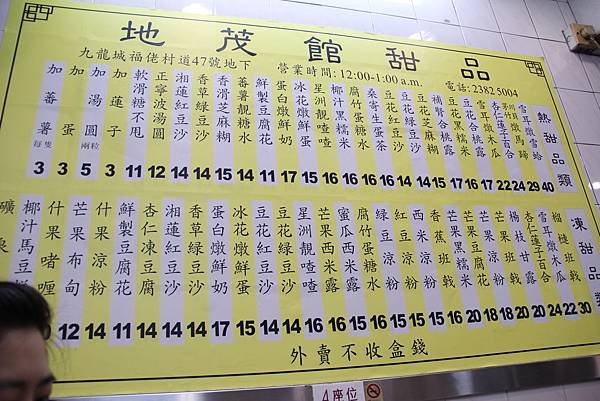 地茂館甜品
九龍城福佬村道47號地下
營業時間: 12:00-1:00 a.m.
電話: 2382 5004
熱甜品類
雪耳燉雪蛤
杏仁蓮子百合
雪耳燉木瓜
豆花合桃露
豆花黑糯米
補腎合桃露
豆花芝麻糊
豆花紅豆沙
桑寄生蛋茶
腐竹蛋糖水
椰汁黑糯米
星洲靚喳咋
冰花燉鮮蛋
蛋白燉鮮奶
鮮製豆腐花
蕃薯靚糖水
香滑芝麻糊
香草綠豆沙
湘蓮紅豆沙
正寧波湯圓
軟滑糖不甩
加蓮子
加湯圓 兩粒
加蛋
加蕃薯 每隻
3 3 5 3 11 12 14 14 15 14 11 17 15 15 16 16 14 14 14 15 17 16 22 24 29 40
凍甜品類
榴槤班戟
雪耳燉木瓜
杏仁蓮子百合
楊枝甘露
芒果班戟
芒果豆腐花
芒果黑糯米
香蕉班戟
紅豆涼粉
綠豆涼粉
腐竹蛋糖水
蜜瓜西米露
芒果西米露
星洲靚喳咋
豆花紅豆沙
冰花燉鮮蛋
蛋白燉鮮奶
香草綠豆沙
湘蓮紅豆沙
杏仁凍豆腐
鮮製豆腐花
什果涼粉
芒果布甸
什果啫喱
椰汁馬豆
礦泉
12 14 11 14 14 14 17 15 14 15 16 16 15 14 14 16 16 20 18 18 20 20 24 22 30
外賣不收盒錢
4座位